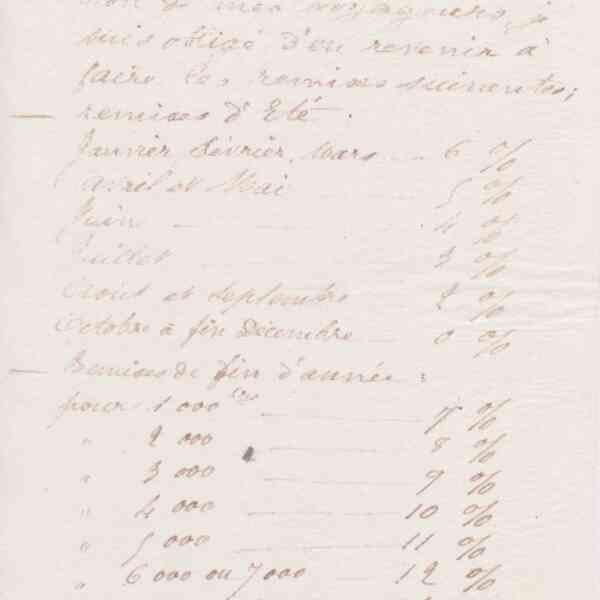 de mes voyageurs, je
suis obligé d'en revenir à
faire les remises suivantes;
— remises d'Eté.
Janvier, Février, Mars — 6 %
Avril et Mai 5 %
Juin — 4 %
Juillet 3 %
Août et Septembre 2 %
Octobre à fin Décembre — 0 %
— Remises de fin d'année:
pour 1 000 — 7 %
" 2 000 — 8 %
" 3 000 — 9 %
" 4 000 — 10 %
" 5 000 — 11 %
" 6 000 ou 7 000 — 12 %